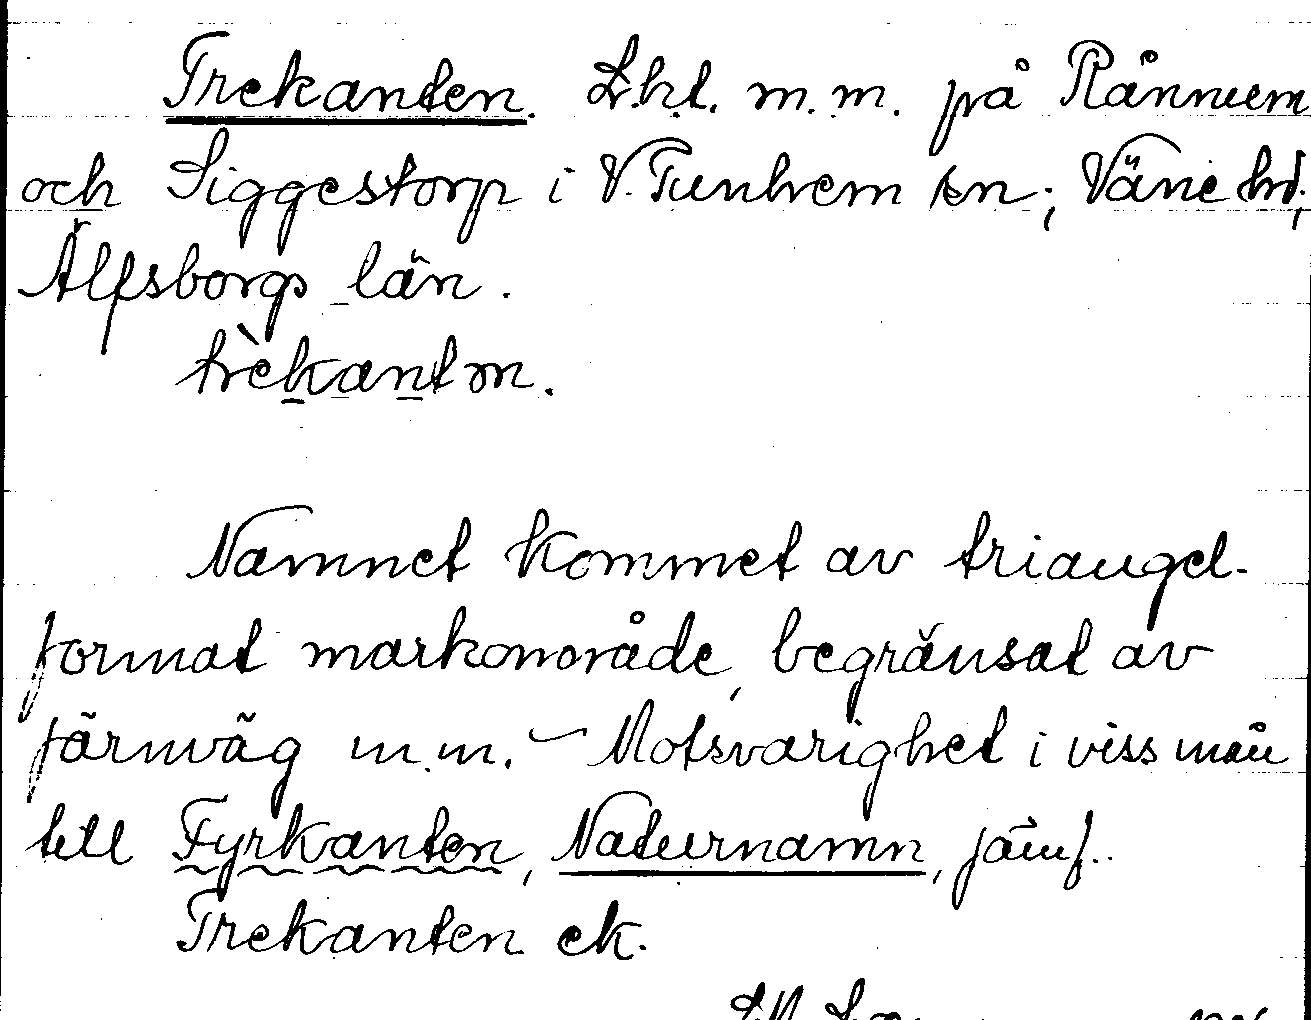 Trekanten. Lht. m.m. på Rånnum
och Siggestorp i V. Tunhem sn; Väne hd;
Älfsborgs län.
trèkantn.
Namnet kommet av triangel-
format markområde, begränsat av
järnväg m.m. – Motsvarighet i viss mån
till Fyrkanten, Naturnamn, jämf.
Trekanten ek.